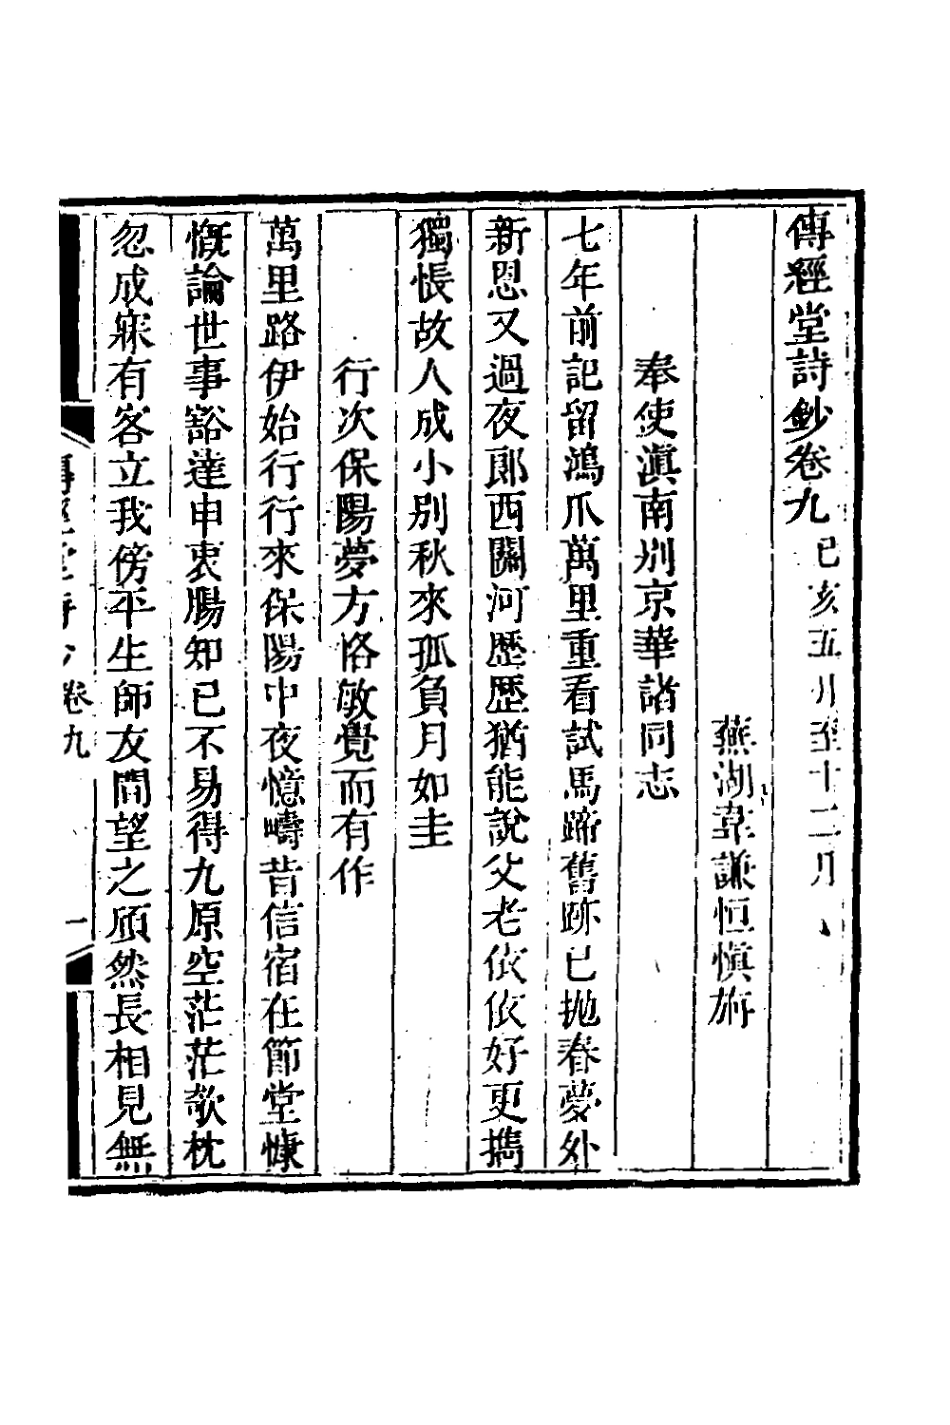 傳經堂詩鈔卷九 己亥五月至十二月
蕪湖韋謙恒慎旃
奉使滇南別京華諸同志
七年前記留鴻爪萬里重看試馬蹄舊跡已拋春夢外
新恩又過夜郎西關河歷歷猶能說父老依依好更攜
獨悵故人成小別秋來孤負月如圭
行次保陽夢方恪敏覺而有作
萬里路伊始行行來保陽中夜憶疇昔信宿在節堂慷
慨論世事豁達申衷腸知已不易得九原空茫茫欹枕
忽成寐有客立我傍平生師友間望之頎然長相見無
卷九
一